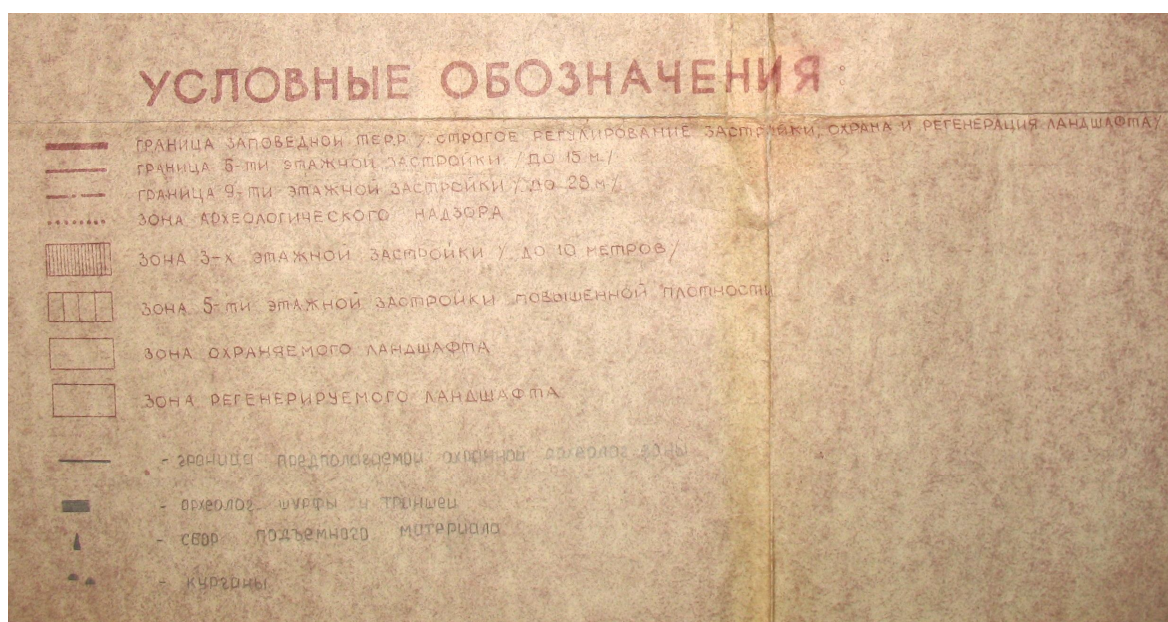 УСЛОВНЫЕ ОБОЗНАЧЕНИЯ
ГРАНИЦА ЗАПОВЕДНОЙ ТЕРР. / СТРОГОЕ РЕГУЛИРОВАНИЕ ЗАСТРОЙКИ, ОХРАНА И РЕГЕНЕРАЦИЯ ЛАНДШАФТА/
ГРАНИЦА 5-ТИ ЭТАЖНОЙ ЗАСТРОЙКИ /ДО 15 М./
ГРАНИЦА 9-ТИ ЭТАЖНОЙ ЗАСТРОЙКИ / ДО 28 М/
ЗОНА АРХЕОЛОГИЧЕСКОГО НАДЗОРА
ЗОНА 3-Х ЭТАЖНОЙ ЗАСТРОЙКИ / ДО 10 МЕТРОВ/
ЗОНА 5-ТИ ЭТАЖНОЙ ЗАСТРОЙКИ ПОВЫШЕННОЙ ПЛОТНОСТИ
ЗОНА ОХРАНЯЕМОГО ЛАНДШАФТА
ЗОНА РЕГЕНЕРИРУЕМОГО ЛАНДШАФТА
- граница предполагаемой охранной археолог зоны
- археолог. шурфы и траншеи
- сбор подъемного материала
- курганы